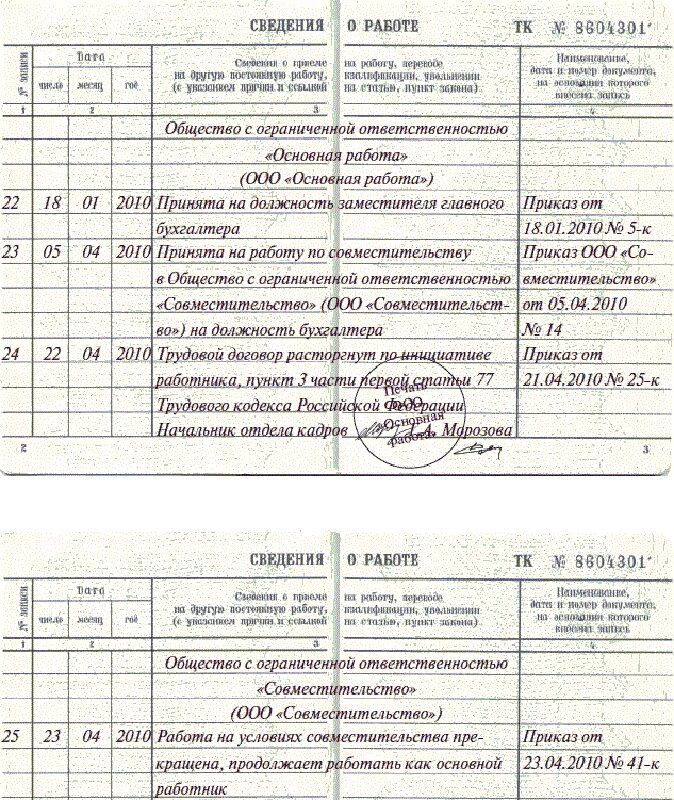 СВЕДЕНИЯ О РАБОТЕ ТК № 8604301
№ записи
Дата
Сведения о приеме на работу, переводе
на другую постоянную работу, квалификации, увольнении
(с указанием причин и ссылкой на статью, пункт закона)
Наименование,
дата и номер документа,
на основании которого
внесена запись
число месяц год
1 2 3 4
Общество с ограниченной ответственностью
«Основная работа»
(ООО «Основная работа»)
22 18 01 2010 Принята на должность заместителя главного Приказ от
бухгалтера 18.01.2010 № 5-к
23 05 04 2010 Принята на работу по совместительству Приказ ООО «Со-
в Общество с ограниченной ответственностью вместительство»
«Совместительство» (ООО «Совместительст- от 05.04.2010
во») на должность бухгалтера № 14
24 22 04 2010 Трудовой договор расторгнут по инициативе Приказ от
работника, пункт 3 части первой статьи 77 21.04.2010 № 25-к
Трудового кодекса Российской Федерации
Начальник отдела кадров Т.А. Морозова
Печать
ООО
Основная
работа
2 3
СВЕДЕНИЯ О РАБОТЕ ТК № 8604301
№ записи
Дата
Сведения о приеме на работу, переводе
на другую постоянную работу, квалификации, увольнении
(с указанием причин и ссылкой на статью, пункт закона)
Наименование,
дата и номер документа,
на основании которого
внесена запись
число месяц год
1 2 3 4
Общество с ограниченной ответственностью
«Совместительство»
(ООО «Совместительство»)
25 23 04 2010 Работа на условиях совместительства пре- Приказ от
кращена, продолжает работать как основной 23.04.2010 № 41-к
работник